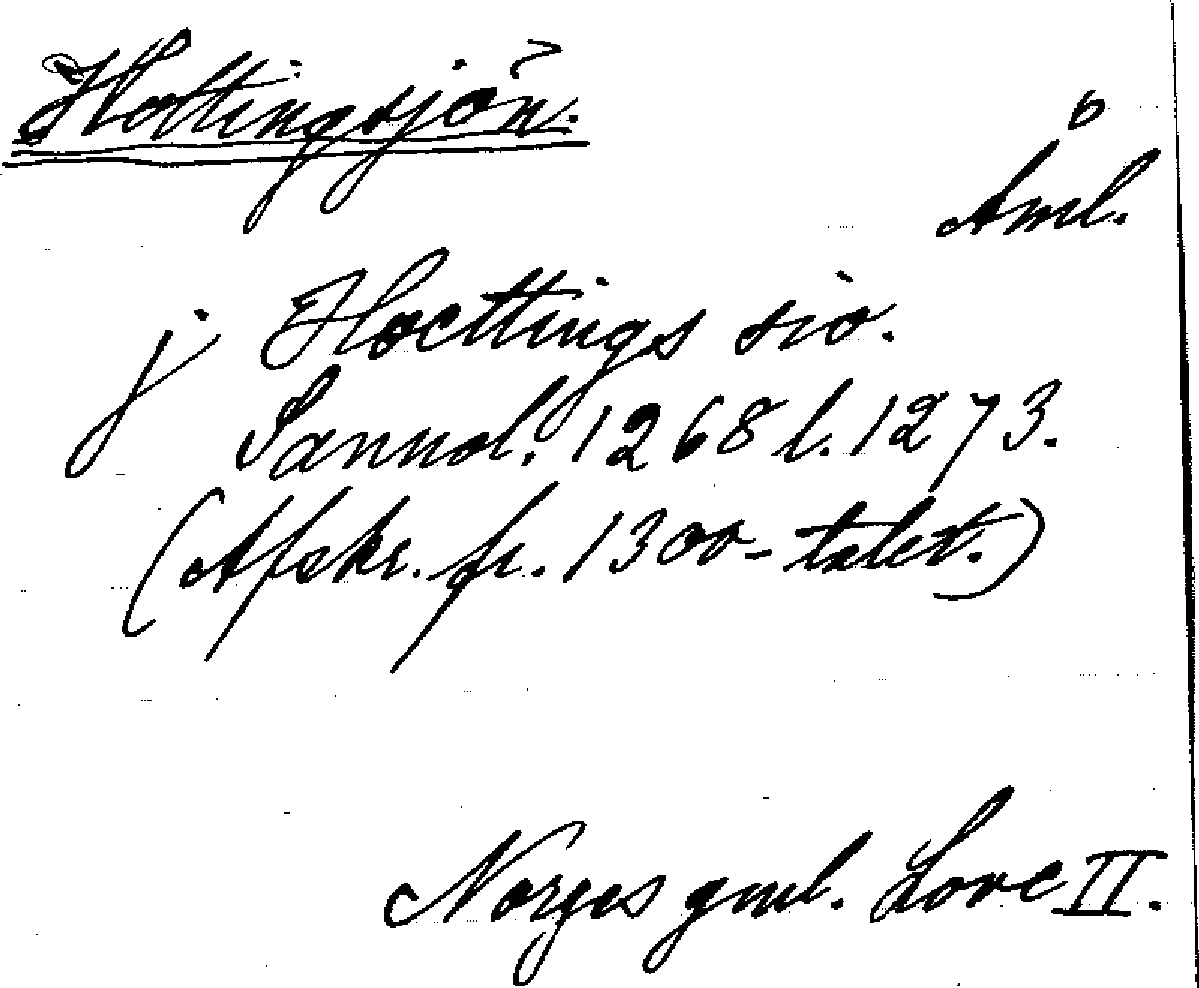 Hottingsjön.
Åml.
j Hoettings sio.
Sannol. 1268 l. 1273.
(Afskr. fr. 1300-talet.)
Norges gml. Love II.